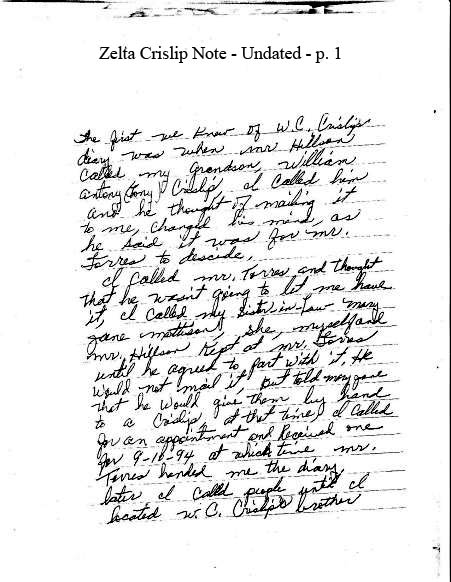 Zelta Crislip Note - Undated - p. 1
The first we knew of W.C. Crislip's
diary was when Mr Hillson
Called my Grandson, William
Antony (Tony) Crislip, I Called him
and he thought of mailing it
to me, changed his mind, as
he said it was for Mr.
Torres to descide.
I Called Mr. Torres and thought
that he wasn't going to let me have
it, I Called my Sister-in-Law Mary
Jane Mattison, She, myself and
Mr. Hillson Kept at Mr. Torres
until he agreed to part with it. He
Would not mail it, But told Mary Jane
that he would give them by hand
to a Crislip, at that time, I Called
for an appointment and Received one
for 9-10-94 at which time Mr.
Torres handed me the diary
later I Called people until I
located W.C. Crislip's brother